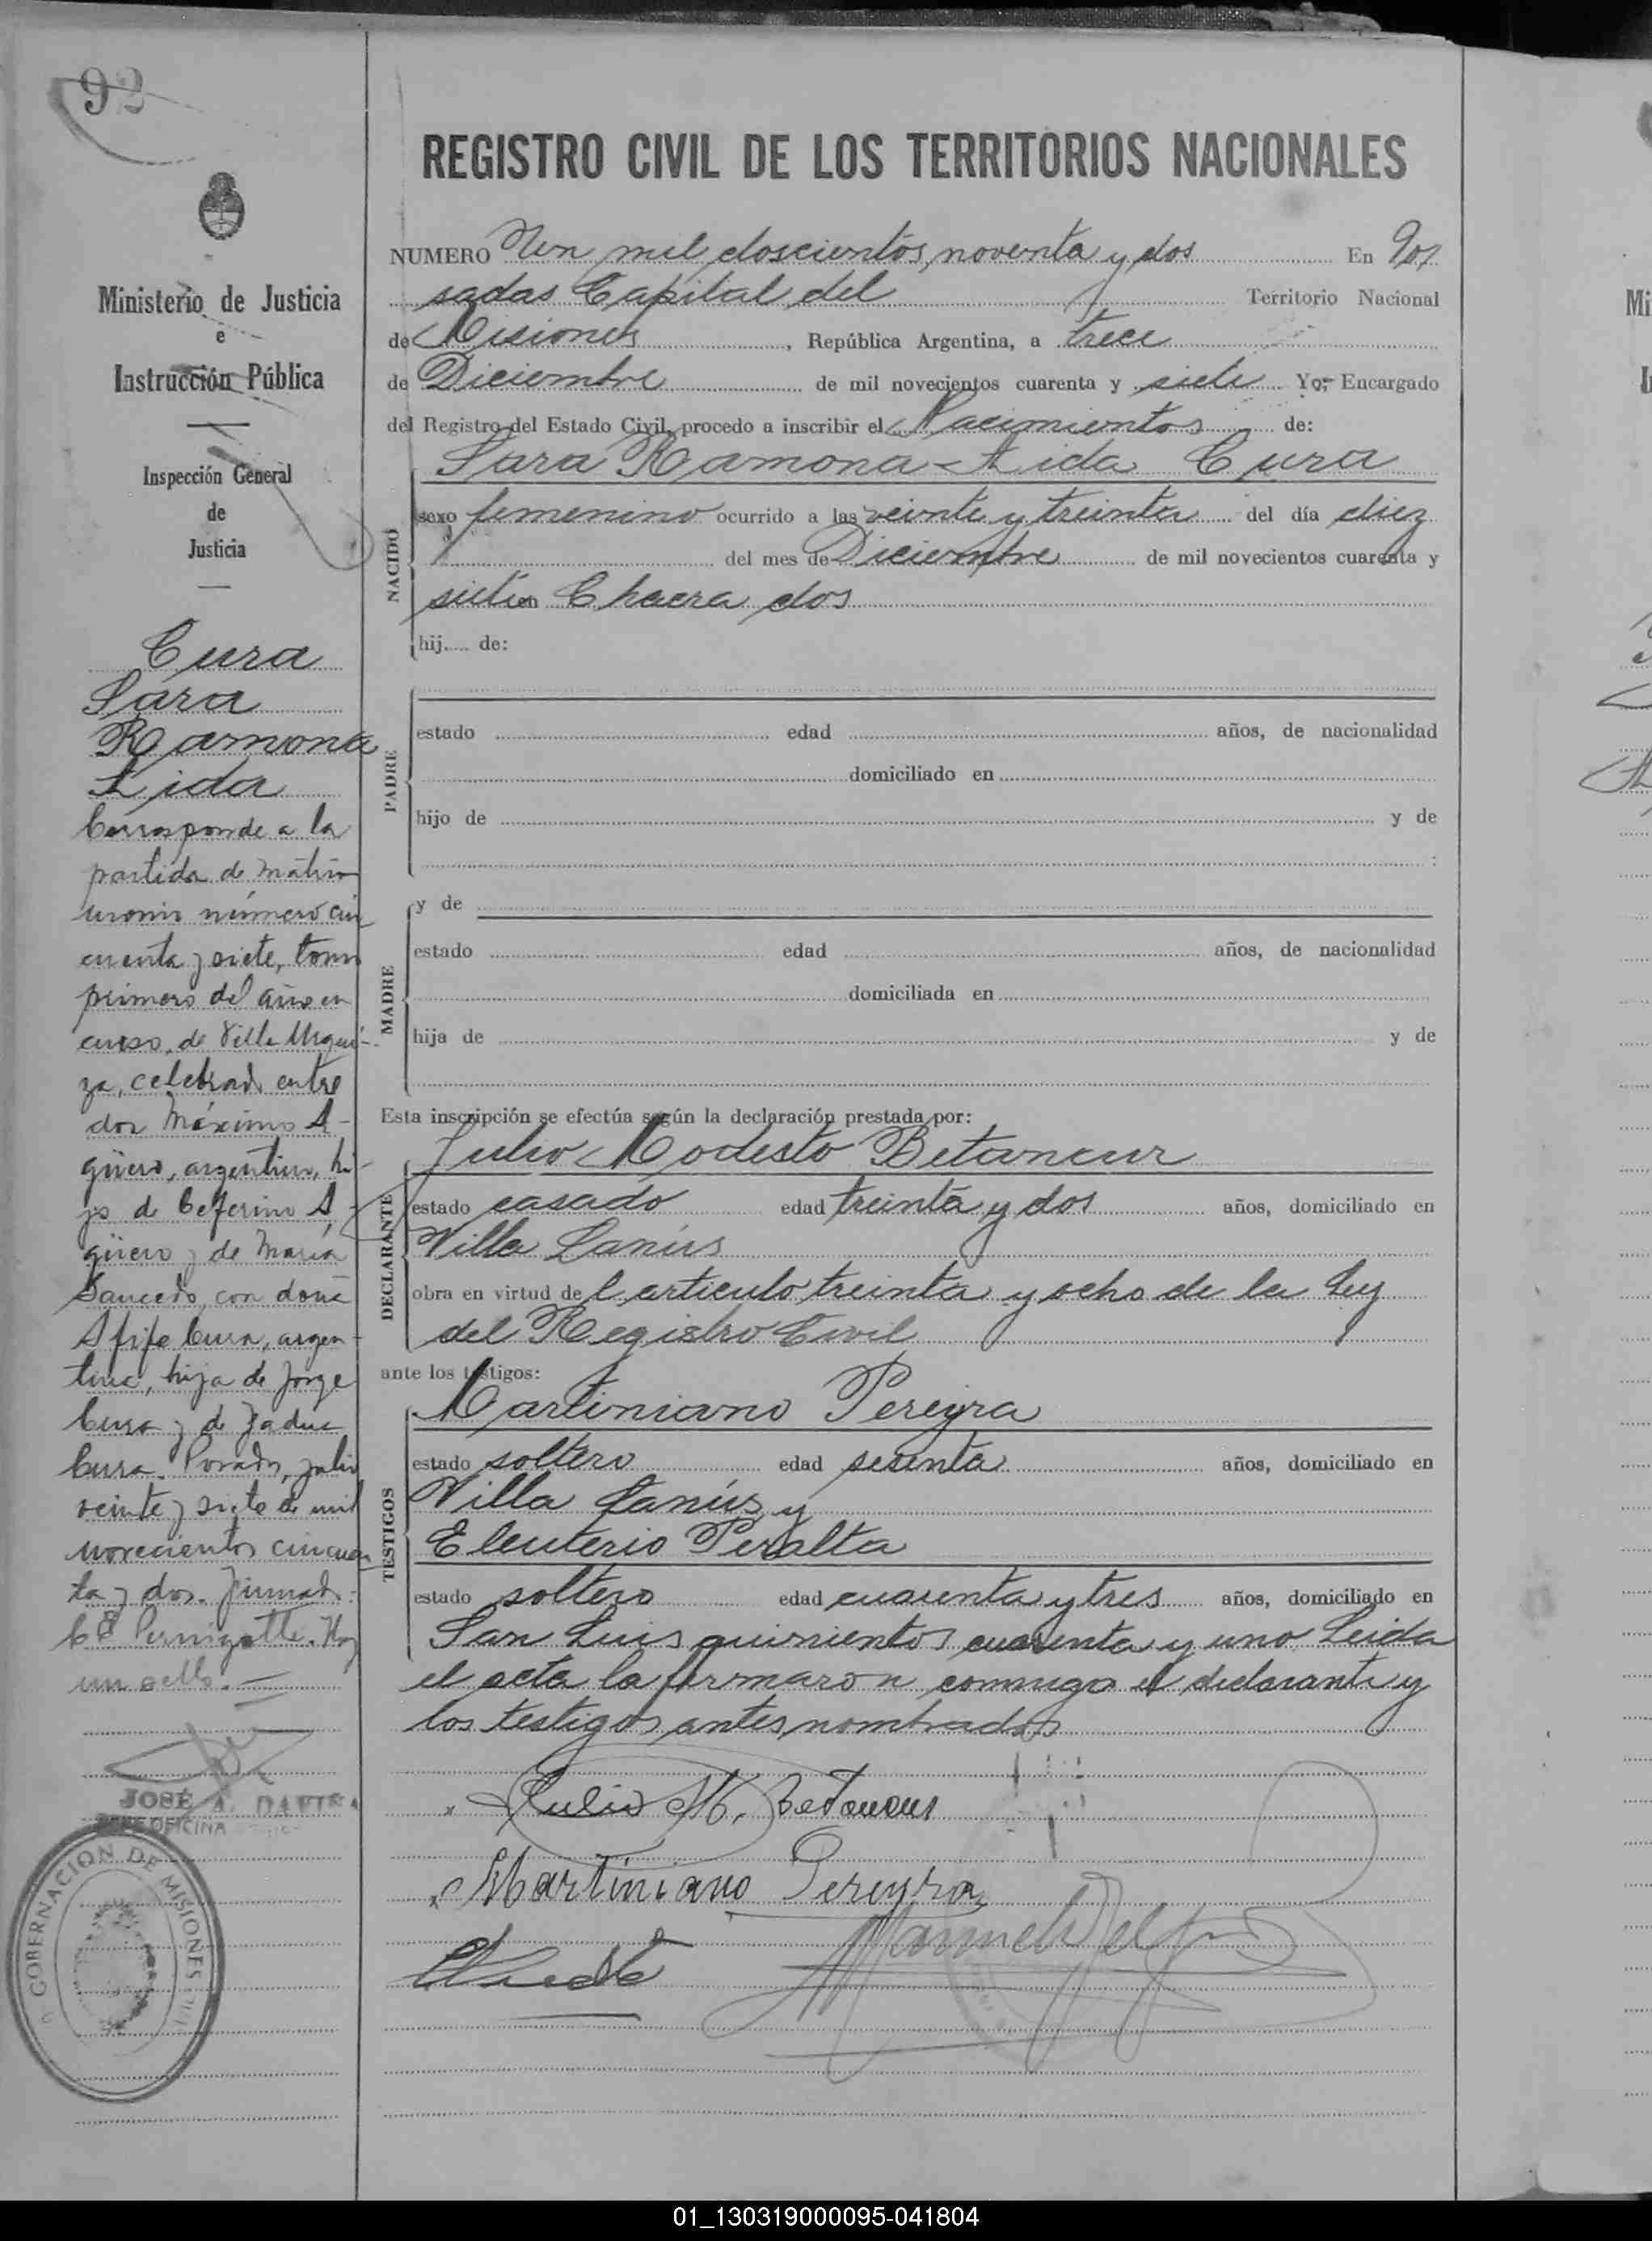 92
Ministerio de Justicia
e
Instrucción Pública
Inspección General
de
Justicia
Cura
Sara
Ramona
Aida
Corresponde a la
partida de matri
monio número cin
cuenta y siete, tomo
primero del año en
curso, de Villa Urqui-
za, celebrado entre
don Máximo A-
güero, argentino, hi-
jo de Ceferino A
güero y de María
Saucedo con doña
Afife Cura, argen-
tina, hija de Jorge
Cura y de
Cura. Posadas, julio
veinte y siete de mil
novecientos cincuen
ta y dos. Firmado:
C E Pernigotti. Hay
un sello. —
JOSÉ A.
OFICINA
GOBERNACION DE MISIONES
REGISTRO CIVIL DE LOS TERRITORIOS NACIONALES
NUMERO Un mil doscientos noventa y dos En Po/
sadas Capital del Territorio Nacional
de Misiones, República Argentina, a trece
de Diciembre de mil novecientos cuarenta y siete Yo, Encargado
del Registro del Estado Civil, procedo a inscribir el Nacimientos de:
Sara Ramona Aida Cura
NACIDO
sexo femenino ocurrido a las veinte y treinta del día diez
del mes de Diciembre de mil novecientos cuarenta y
siete en Chacra dos
hij..... de:
PADRE
estado edad años, de nacionalidad
domiciliado en
hijo de y de
:
MADRE
y de
estado edad años, de nacionalidad
domiciliada en
hija de y de
Esta inscripción se efectúa según la declaración prestada por:
Julio Modesto Betancur
DECLARANTE
estado casado edad treinta y dos años, domiciliado en
Villa Lanús
obra en virtud de l articulo treinta y ocho de la Ley
del Registro Civil
ante los testigos:
Martiniano Pereyra
TESTIGOS
estado soltero edad sesenta años, domiciliado en
Villa Lanús y
Eleuterio Peralta
estado soltero edad cuarenta y tres años, domiciliado en
San Luis quinientos cuarenta y uno Leida
el acta la firmaron conmigo el declarante y
los testigos antes nombrados
Julio M. Betancur
Martiniano Pereyra
01_130319000095-041804